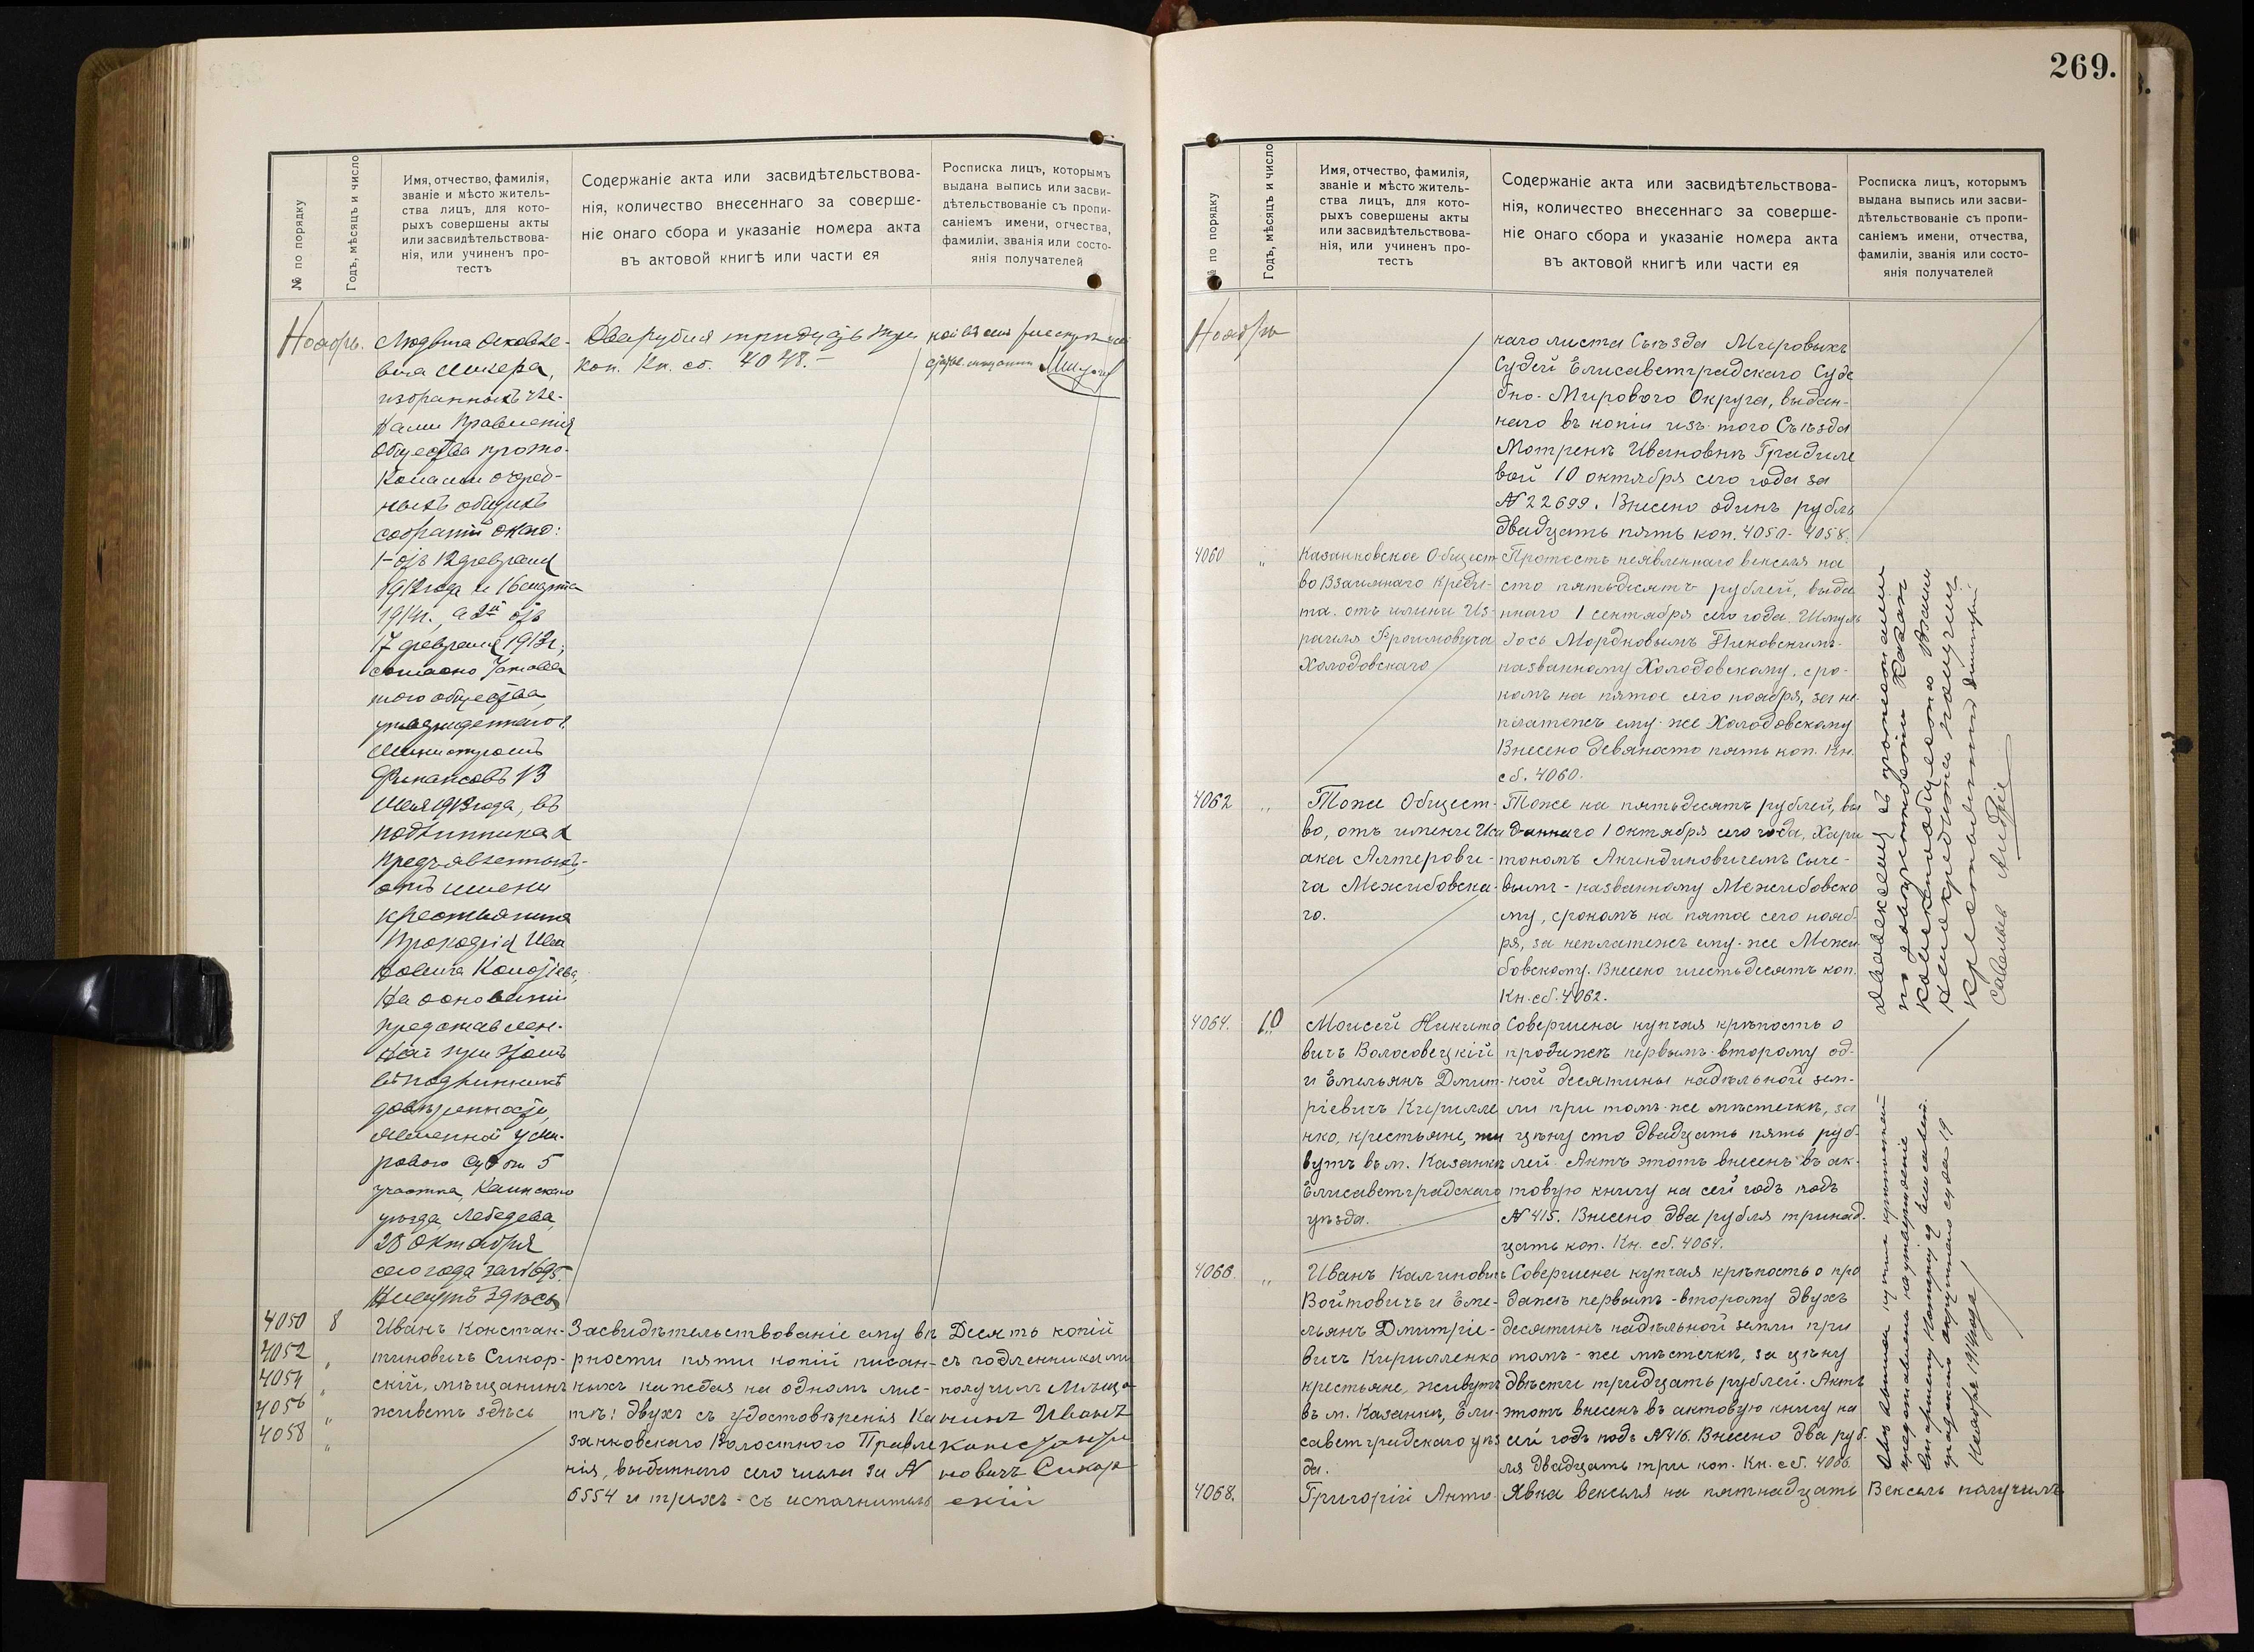 269.
№ по порядку
Годъ, мѣсяцъ и число
Имя, отчество, фамилія,
званіе и мѣсто житель-
ства лицъ, для кото-
рыхъ совершены акты
или засвидѣтельствова-
нія, или учиненъ про-
тестъ
Содержаніе акта или засвидѣтельствова-
нія, количество внесеннаго за соверше-
ніе онаго сбора и указаніе номера акта
въ актовой книгѣ или части ея
Росписка лицъ, которымъ
выдана выпись или засви-
дѣтельствованіе съ пропи-
саніемъ имени, отчества,
фамиліи, званія или состо-
янія получателей
Ноябрь.
Людвига
вича
избранныхъ чле-
нами Правленія
Общества прото-
колами очеред-
ныхъ общихъ
собраній
1-отъ 12 февраля
1912 года и 16 марта
1914 г., а 2й отъ
17 февраля 1913 г.,
согласно Устава
того общества,
утвержденнаго
Министромъ
Финансовъ 13
Мая 1913 года, въ
подлинникахъ
предъявленныхъ,
отъ имени
крестьянина
Прокофія Ива
новича
На основаніи
представлен-
ной при этомъ
въ подлинникѣ
довѣренности,
явленной у Ми-
рового Судьи 5
участка, Каинскаго
уѣзда, Лебедева,
28 Октября
сего года за № 1695.
Живутъ здѣсь
Два рубля тридцать три
коп. Кн. сб. 4048.-
4050
8
4052
"
4054
"
4056
"
4058
"
Иванъ Констан-
тиновичъ Сикор-
скій, мѣщанинъ
живетъ здѣсь
Засвидѣтельствованіе ему вѣ
рности пяти копій писан-
ныхъ каждая на одномъ лис-
тѣ: двухъ съ удостовѣренія Ка
занковскаго Волостного Правле
нія, выданнаго сего числа за №
6554 и трехъ - съ исполнитель
Десять копій
съ подленниками
получилъ Мѣща
нинъ Иванъ
Константи
новичъ Сикор
скій
№ по порядку
Годъ, мѣсяцъ и число
Имя, отчество, фамилія,
званіе и мѣсто житель-
ства лицъ, для кото-
рыхъ совершены акты
или засвидѣтельствова-
нія, или учиненъ про-
тестъ
Содержаніе акта или засвидѣтельствова-
нія, количество внесеннаго за соверше-
ніе онаго сбора и указаніе номера акта
въ актовой книгѣ или части ея
Росписка лицъ, которымъ
выдана выпись или засви-
дѣтельствованіе съ пропи-
саніемъ имени, отчества,
фамиліи, званія или состо-
янія получателей
Ноябрь
наго листа Съѣзда Мировыхъ
Судей Елисаветградскаго Суде
бно-Мирового Округа, выдан-
наго въ копіи изъ того Съѣзда
Мотренѣ Ивановнѣ Градиле
вой 10 октября сего года за
№ 22699. Внесено одинъ рубль
двадцать пять коп. 4050-4058.
4060
"
Казанковское Общест
во Взаимнаго Креди-
та. отъ имени Из-
раиля Фроимовича
Холодовскаго
Протестъ неявленнаго векселя на
сто пятьдесятъ рублей, выда
ннаго 1 сентября сего года. Шмуль
Іось Мордковымъ Пиковскимъ-
названному Холодовскому, сро-
комъ на пятое сего ноября, за не
платежъ ему-же Холодовскому
Внесено девяносто пять коп. Кн.
сб. 4060.
4062
"
Тоже Общест-
во, отъ имени Иса
ака Алтерови-
ча Межибовска-
го.
Тоже на пятьдесятъ рублей, вы
даннаго 1 октября сего года, Хари
тономъ Акиндиновичемъ Сыче-
вымъ - названному Межибовско
му, срокомъ на пятое сего нояб-
ря, за неплатежъ ему-же Межи
бовскому. Внесено шестьдесятъ коп.
Кн. сб. 4062.
Два векселя съ протестами
по довѣренности Казан
ковскаго общества Взаим
наго кредита получилъ
крестьянинъ Дмитрій
4064.
10
Моисей Никито
вичъ Волосовецкій
и Емельянъ Дмит-
ріевичъ Кирилле
нко, крестьяне, жи
вутъ въ м. Казанкѣ
Елисаветградскаго
уѣзда.
Совершена купчая крѣпость о
продажѣ первымъ-второму од-
ной десятины надѣльной зем-
ли при томъ-же мѣстечкѣ, за
цѣну сто двадцать пять руб-
лей. Актъ этотъ внесенъ въ ак-
товую книгу на сей годъ подъ
№ 415. Внесено два рубля тринад-
цать коп. Кн. сб. 4064.
4066.
"
Иванъ Калиновичъ
Войтовичъ и Еме-
льянъ Дмитріе-
вичъ Кирилленко
крестьяне, живутъ
въ м. Казанкѣ, Ели-
саветградскаго уѣз
да.
Совершена купчая крѣпость о про
дажѣ первымъ-второму двухъ
десятинъ надѣльной земли при
томъ-же мѣстечкѣ, за цѣну
двѣсти тридцать рублей. Актъ
этотъ внесенъ въ актовую книгу на
сей годъ подъ № 416. Внесено два руб-
ля двадцать три коп. Кн. сб. 4066.
Ноября 1914 года
4068.
Григорій Анто
Явка векселя на пятнадцать
Вексель получилъ